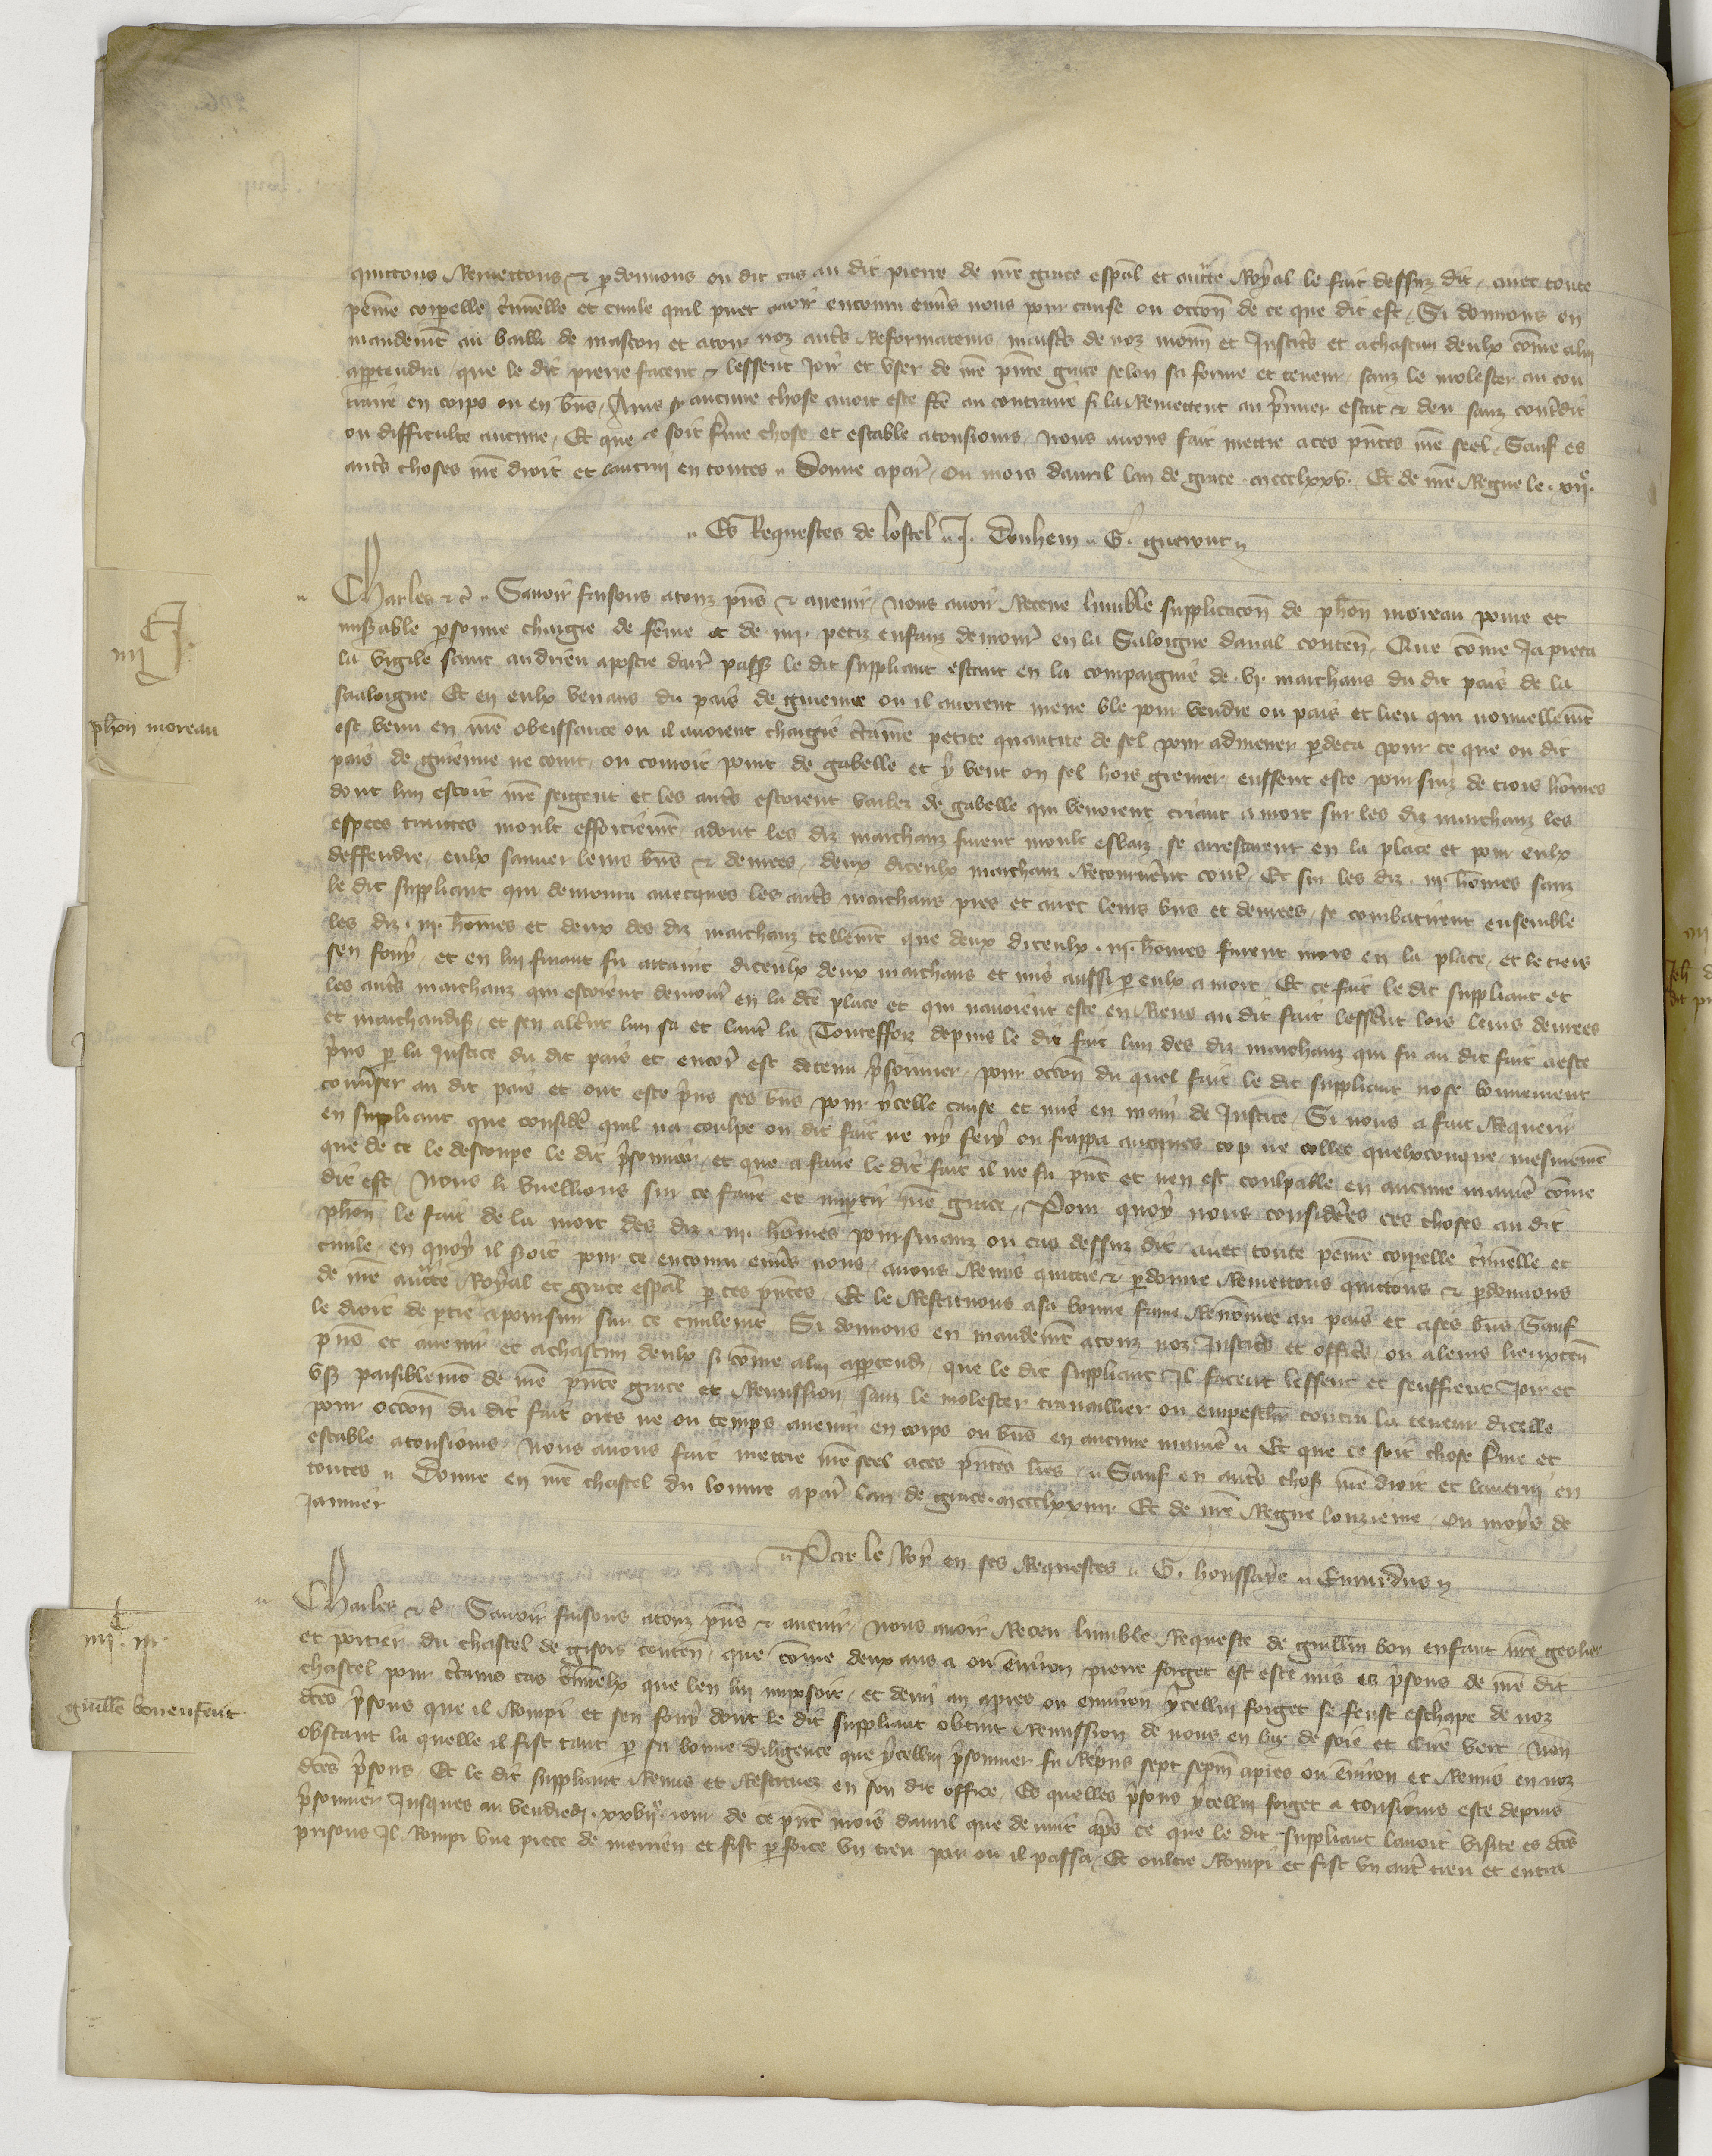 quittons Remettons & pdonnons ou dit cas au dit pierre de nre grace espal et auctte Royal le fait dessuz dit, avec toute
peinne corporelle criminelle et civile quil puet avoir encouru envs nous pour cause ou occon de ce que dit est, Si donnons en
mandemt au bailli de mascon et a touz noz autrs Reformateurs, maistrs de noz monn et Justicrs et a chascun deulx come a lui
appartendra, que le dit pierre facent & lessent Joir et user de nre pnte grace selon sa forme et teneur, sanz le molester au con
traire en corps ou en bns, Ains se aucune chose avoit este fte au contraire si la Remettent au prmier estat & deu sanz contrdit
ou difficulte aucune, Et que ce soit ferme chose et estable a tousiours, nous avons fait mettre a ces pntes nre seel, Sauf es
autrs choses nre droit et lautrui en toutes Donne a parr, ou mois davril lan de grace mccclxxv. Et de nre Regne le xije.
Es Requestes de lostel J. Douhem G. guerout
Charles &c Savoir faisons a touz pns & avenir, nous avoir Receue lumble supplicacon de phon moreau povre et
misable psonne chargie de feme et de iiij. petiz enfanz demourr en la Saloigne daval conten, Que come Ja pieca
la vigile saint andrieu apostre darr passe le dit suppliant estant en la compaignie de vj. marchans du dit pais de la
saaloigne Et en eulx venans du pais de guienne ou il avoient mene ble pour vendre ou pais et lieu qui nouvellemt
est venu en nre obeissance ou il avoient chargie crtaine petite quantite de sel pour admener pdeca pour ce que ou dit
pais de guienne ne court, ou couroit point de gabelle et y vent on sel hors grenier, eussent este pour suiz de trois homes
dont lun estoit nre sergent et les autrs estoient varlez de gabelle qui venoient criant a mort sur les diz marchanz les
espees traites moult efforciemt, adont les diz marchanz furent moult esbaiz, se arresterent en la place et pour eulx
deffendre, eulx sauver leurs bns & denrees, deux diceulx marchanz Retournrent contr, Et sur les diz iij. homes sanz
le dit suppliant qui demoura avecques les autrs marchans pres et avec leurs bns et denrees, se combatirent ensemble
les diz iij. homes et deux des diz marchanz tellemt que deux diceulx iij. homes furent mors en la place, et le tiers
sen fouy, et en lui fuiant fu attaint diceulx deux marchans et mis aussi p eulx a mort, Et ce fait le dit suppliant et
les autrs marchanz qui estoient demourr en la dte place et qui navoient este en Riens au dit fait lessrent lors leurs denrees
et marchandis, et sen alrent lun sa et lautr la Touteffoiz depuis le dit fait lun des diz marchanz qui fu au dit fait a este
prins p la Justice du dit pais et encor est detenu prsonnier, pour occon du quel fait le dit suppliant nose bonnement
convrser au dit pais et ont este prins ses bns pour ycelle cause et mis en main de Justice, Si nous a fait Requerir
en suppliant que considr quil na coulpe ou dit fait ne ny fery ou frappa aucunes cop ne collee quelxconque mesmemt
que de ce le descoupe le dit prsonnier, et que a faire le dit fait il ne fu pnt et nen est coulpable en aucune manr come
dit est, Nous li vueillions sur ce faire et impartir nre grace, Pour quoy nous considrees ces choses au dit
phon le fait de la mort des diz iij. homes poursuianz ou cas dessuz dit avec toute peinne corpelle crminelle et
civile, en quoy il soit pour ce encouru envs nous, avons Remis quittie & pdonne Remettons quittons & pdonnons
de nre auctte Royal et grace espal p ces pntes, Et le Restituons a sa bonne fame Renommee au pais et a ses bns Sauf
le droit de ptie a poursuir sur ce civilemt, Si donnons en mandemt a touz noz Justicrs et officrs, ou a leurs lieuxten
pns et avenir et a chascun deulx si come a lui appartend, que le dit suppliant Il facent lessent et seuffrent Joir et
usr paisiblemt de nre pnte grace et Remission sanz le molester travaillier ou empeschier contre la teneur dicelle
pour occon du dit fait ores ne ou temps avenir en corps ou bns en aucune manr Et que ce soit chose ferme et
estable a tousiours, Nous avons fait mettre nre seel a ces pntes lres, Sauf en autrs chos nre droit et lautrui en
toutes Donne en nre chastel du louvre a parr lan de grace mccclxxiiij. Et de nre Regne lonzieme, ou moys de
Janvier
Par le Roy en ses Requestes G. houssaye Evrardus
Charles &c Savoir faisons a touz pns & avenir, nous avoir Receu lumble Requeste de guillm bon enfant nre geolier
et portier du chastel de gisors conten, que come deux ans a ou environ pierre forget est este mis es prsons de nre dit
chastel pour crtains cas crminelx que len lui imposoit, et demi an apres ou environ ycellui forget se feust eschape de noz
dtes prsons que il Rompi et sen fouy dont le dit suppliant obtint Remission de nous en laz de soie et cire vert, Non
obstant la quelle il fist tant p sa bonne diligence que ycellui prsonnier fu Reprins sept sepm apres ou environ et Remis en noz
dtes prsons, Et le dit suppliant Remis et Restituez en son dit office, Es quelles prsons ycellui forget a tousiours este depuis
prsonnier Jusques au vendredi xxvije iour de ce pnt mois davril que de nuit aps ce que le dit suppliant lavoit visite es dtes
prisons Il Rompi une piece de merrien et fist p force un treu par ou il passa, Et oultre Rompi et fist un autr treu et entra
iiij
phon moreau
iiij. iij.
guille bonenfent